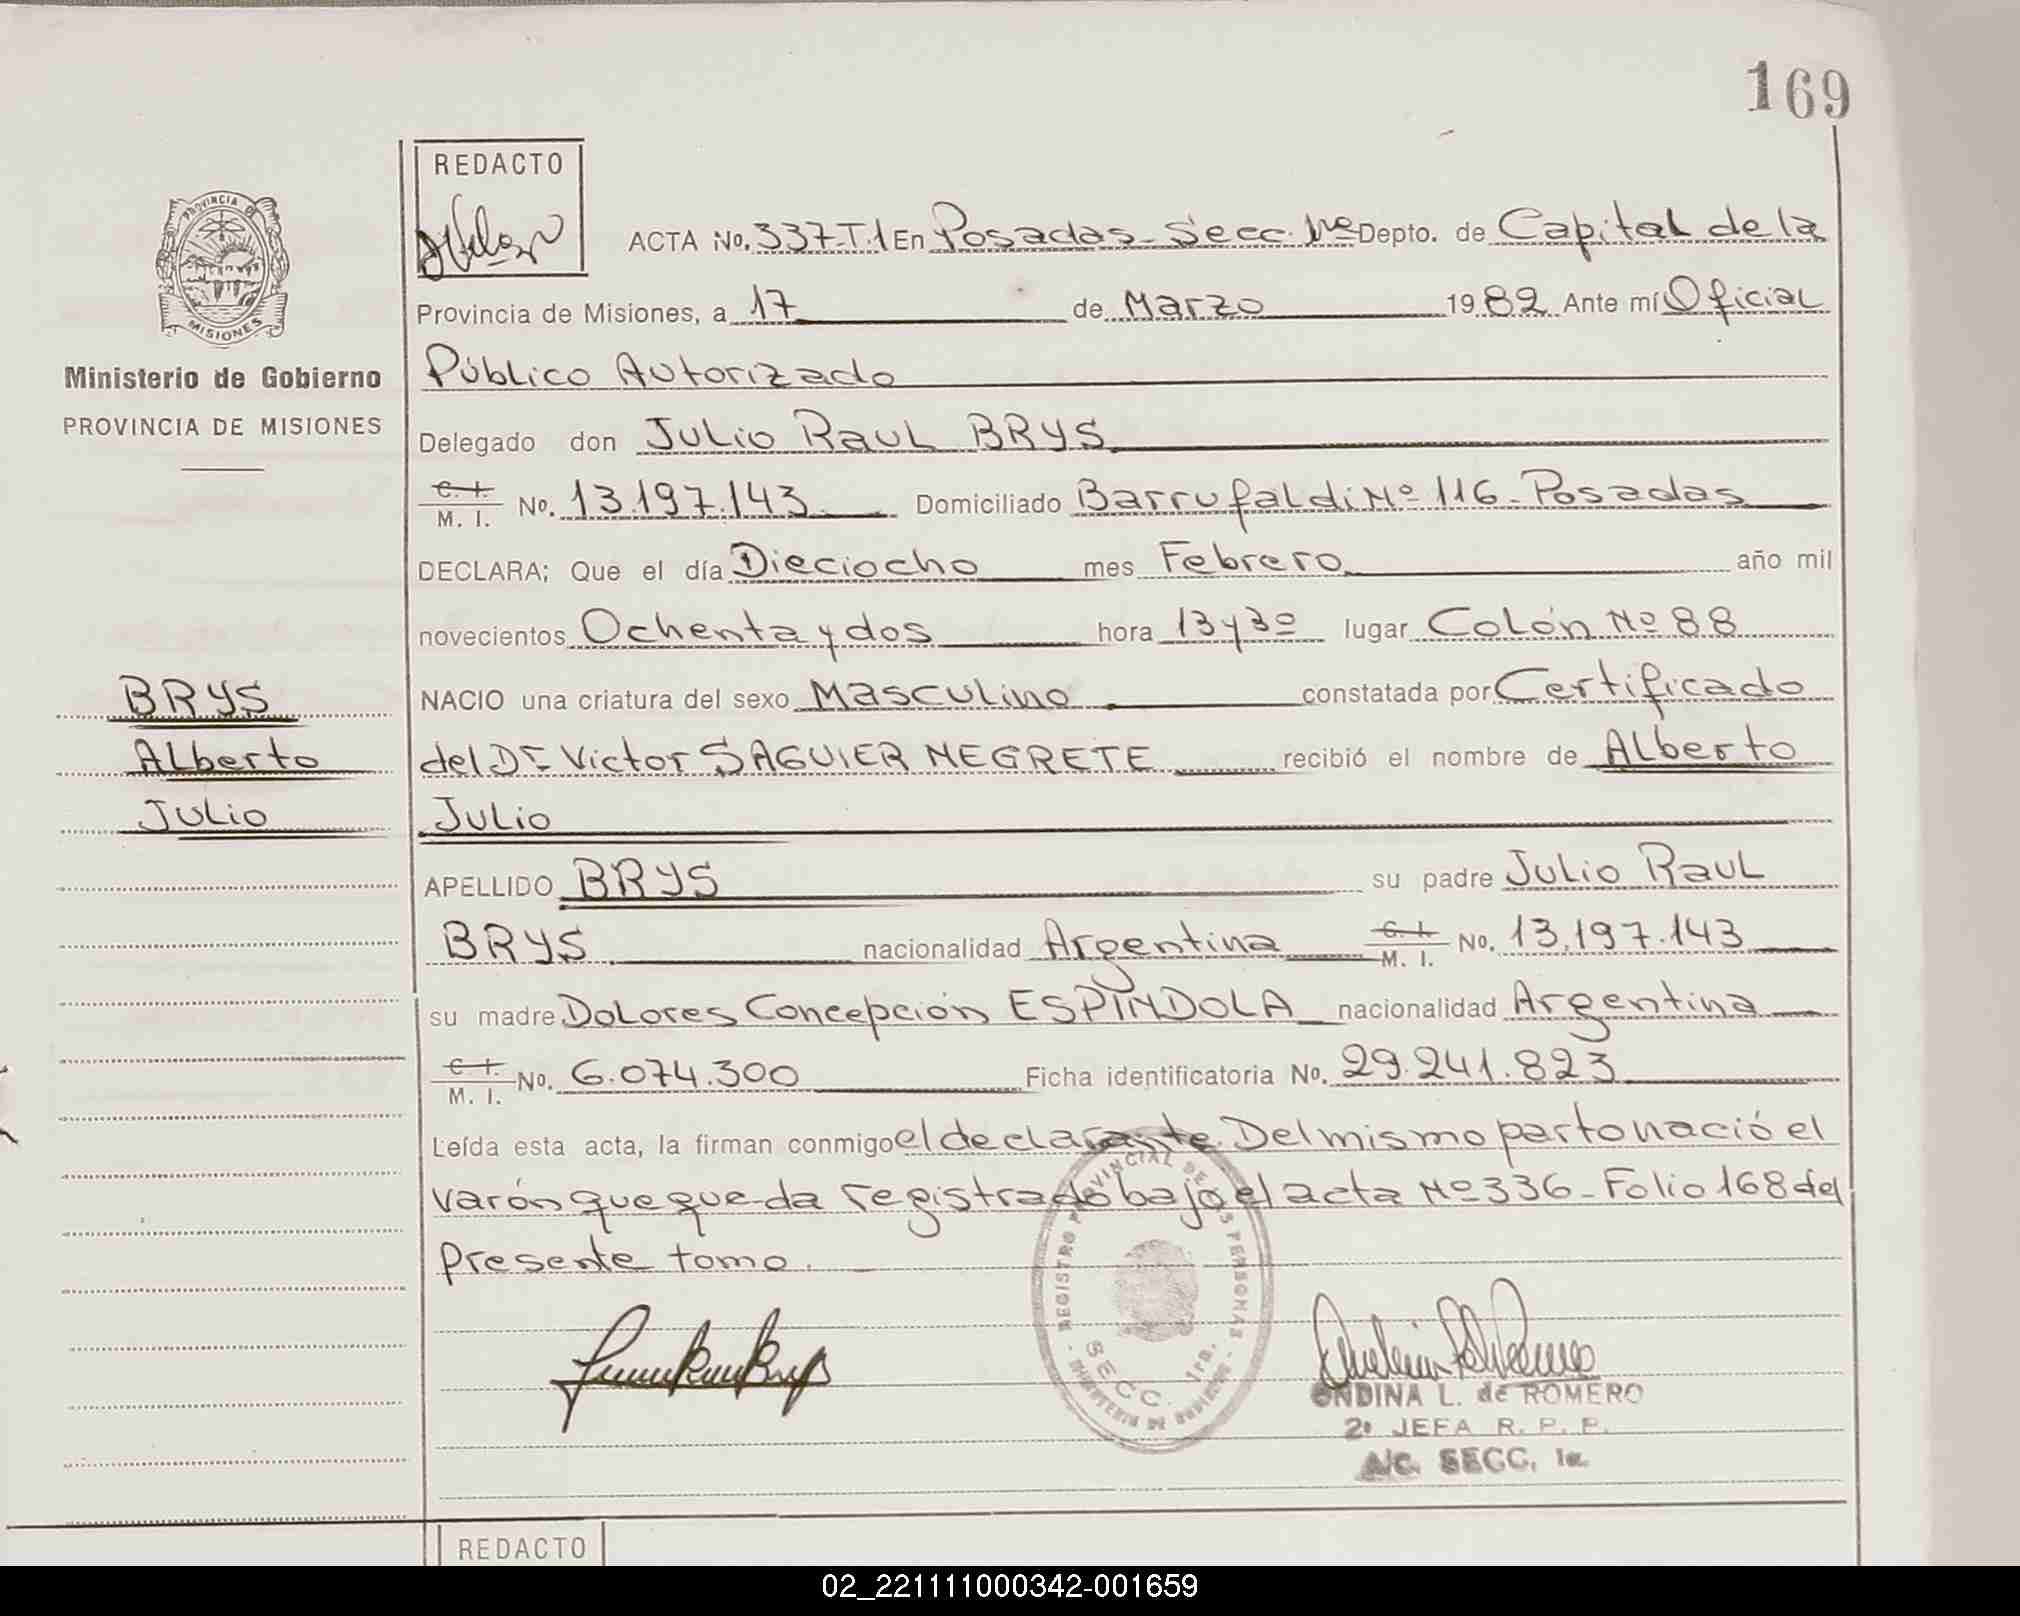 169
REDACTO
PROVINCIA DE
MISIONES
Ministerio de Gobierno
PROVINCIA DE MISIONES
BRYS
Alberto
Julio
ACTA No. 337-T.1 En Posadas - Secc. 1ra Depto. de Capital de la
Provincia de Misiones, a 17 de Marzo 1982 Ante mí Oficial
Público Autorizado
Delegado don Julio Raul BRYS
C. I. M. I. No. 13.197.143 Domiciliado Barrufaldi Nº 116 - Posadas
DECLARA; Que el día Dieciocho mes Febrero año mil
novecientos Ochenta y dos hora 13 y 30 lugar Colón Nº 88
NACIO una criatura del sexo Masculino constatada por Certificado
del Dr. Victor SAGUIER NEGRETE recibió el nombre de Alberto
Julio
APELLIDO BRYS su padre Julio Raul
BRYS nacionalidad Argentina C. I. M. I. No. 13.197.143
su madre Dolores Concepción ESPÍNDOLA nacionalidad Argentina
C. I. M. I. No. 6.074.300 Ficha identificatoria No. 29.241.823
Leída esta acta, la firman conmigo el declarante. Del mismo parto nació el
varón que queda registrado bajo el acta Nº 336 - Folio 168 del
presente tomo.
REGISTRO PROVINCIAL DE LAS PERSONAS
SECC. 1ra.
ONDINA L. de ROMERO
2º JEFA R. P. P.
A/C. SECC. 1a.
REDACTO
02_221111000342-001659